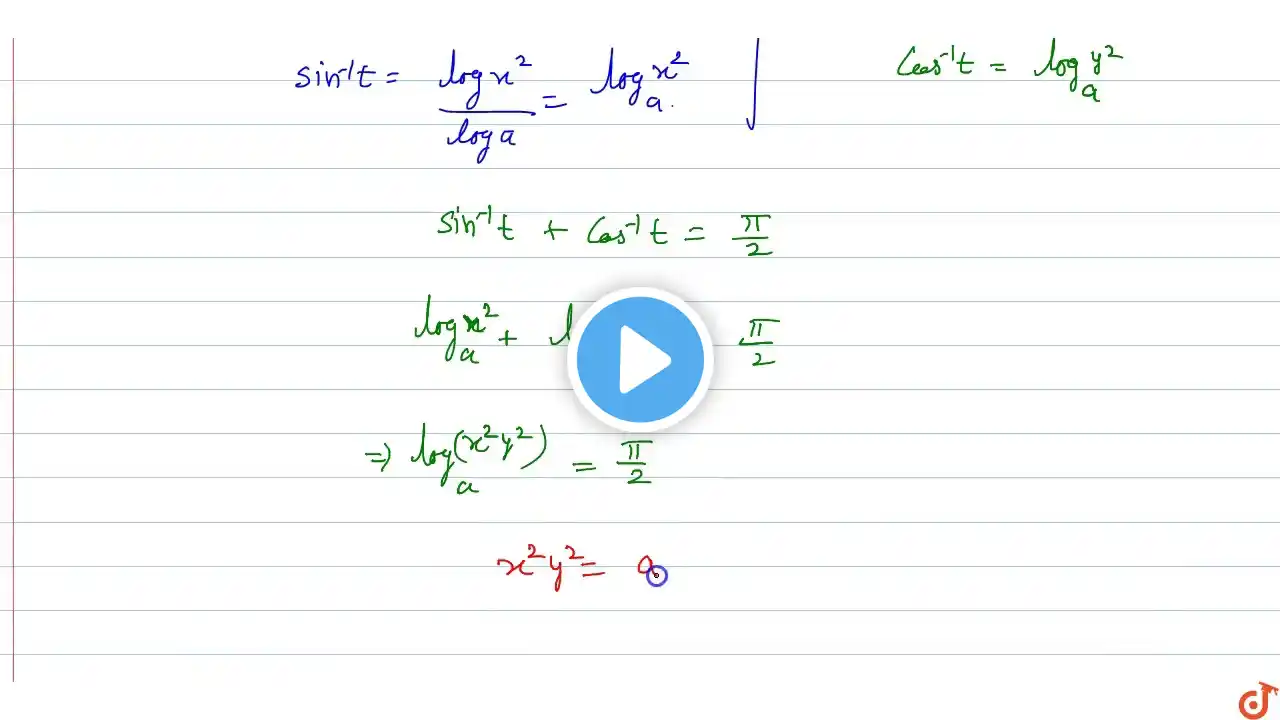 sin⁻¹t = log x² / log a = logₐ x²
Cos⁻¹t = logₐ y²
sin⁻¹t + Cos⁻¹t = π/2
logₐ x² + π/2
⇒ logₐ (x²y²) = π/2
x²y² = a